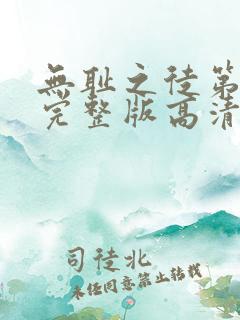 无耻之徒第
完整版高清
司徒北
未经同意禁止转载